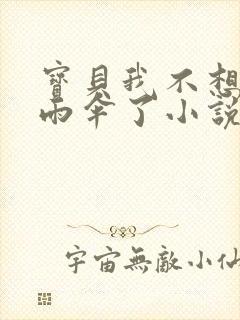 寶貝我不想
雨傘了小說
宇宙無敵小仙